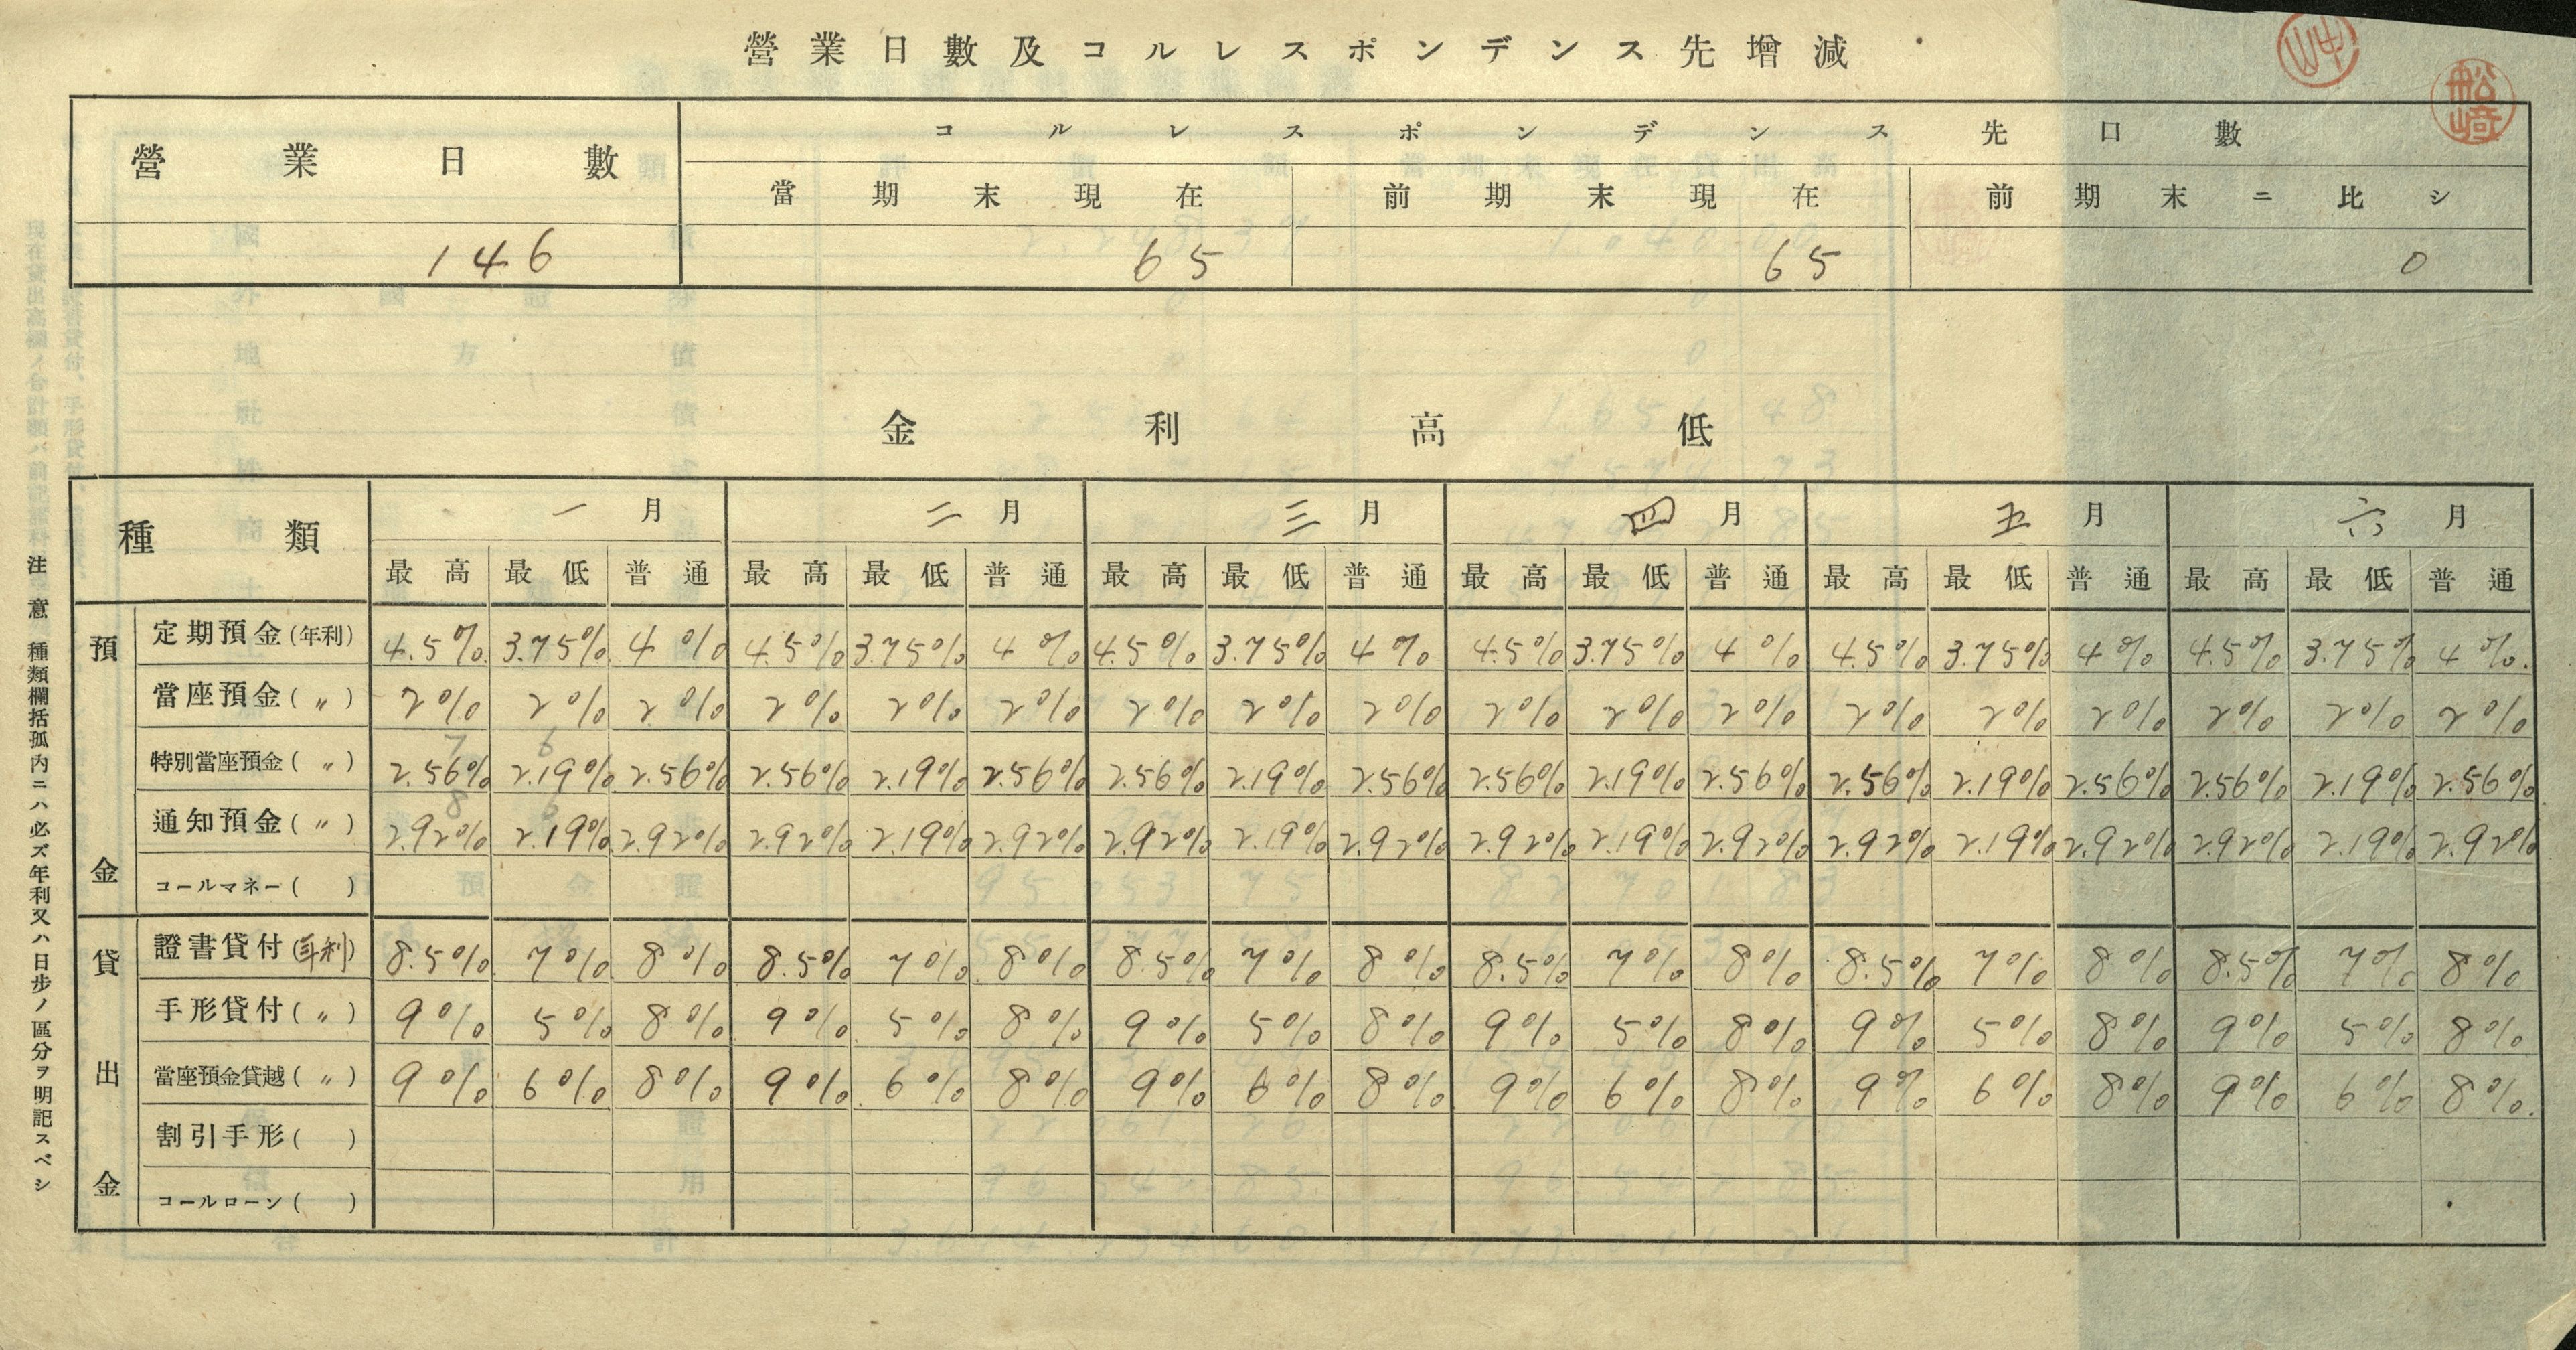 營業日數及コルレスポンデンス先增減
營業日數 コルレスポンデンス先口數
當期末現在 前期末現在 前期末ニ比シ
146 65 65 0
金利高低
種類 一月 二月 三月 四月 五月 六月
最高 最低 普通 最高 最低 普通 最高 最低 普通 最高 最低 普通 最高 最低 普通 最高 最低 普通
預金
定期預金(年利) 4.5% 3.75% 4% 4.5% 3.75% 4% 4.5% 3.75% 4% 4.5% 3.75% 4% 4.5% 3.75% 4% 4.5% 3.75% 4%
當座預金(〃) 2% 2% 2% 2% 2% 2% 2% 2% 2% 2% 2% 2% 2% 2% 2% 2% 2% 2%
7 6
特別當座預金(〃) 2.56% 2.19% 2.56% 2.56% 2.19% 2.56% 2.56% 2.19% 2.56% 2.56% 2.19% 2.56% 2.56% 2.19% 2.56% 2.56% 2.19% 2.56%
8 6
通知預金(〃) 2.92% 2.19% 2.92% 2.92% 2.19% 2.92% 2.92% 2.19% 2.92% 2.92% 2.19% 2.92% 2.92% 2.19% 2.92% 2.92% 2.19% 2.92%
コールマネー( )
貸出金
證書貸付(年利) 8.5% 7% 8% 8.5% 7% 8% 8.5% 7% 8% 8.5% 7% 8% 8.5% 7% 8% 8.5% 7% 8%
手形貸付(〃) 9% 5% 8% 9% 5% 8% 9% 5% 8% 9% 5% 8% 9% 5% 8% 9% 5% 8%
當座預金貸越(〃) 9% 6% 8% 9% 6% 8% 9% 6% 8% 9% 6% 8% 9% 6% 8% 9% 6% 8%
割引手形( )
コールローン( )
注意 種類欄括孤内ニハ必ズ年利又ハ日歩ノ區分ヲ明記スベシ